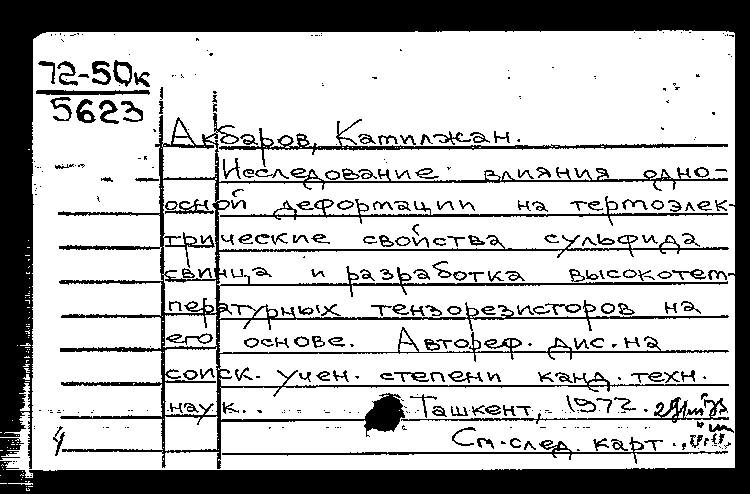 72-50к
5623
Акбаров, Камилжан.
Исследование влияния одно-
осной деформации на термоэлек-
трические свойства сульфида
свинца и разработка высокотем-
пературных тензорезисторов на
его основе. Автореф. дис. на
соиск. учен. степени канд. техн.
наук. . Ташкент, 1972.
См. след. карт.